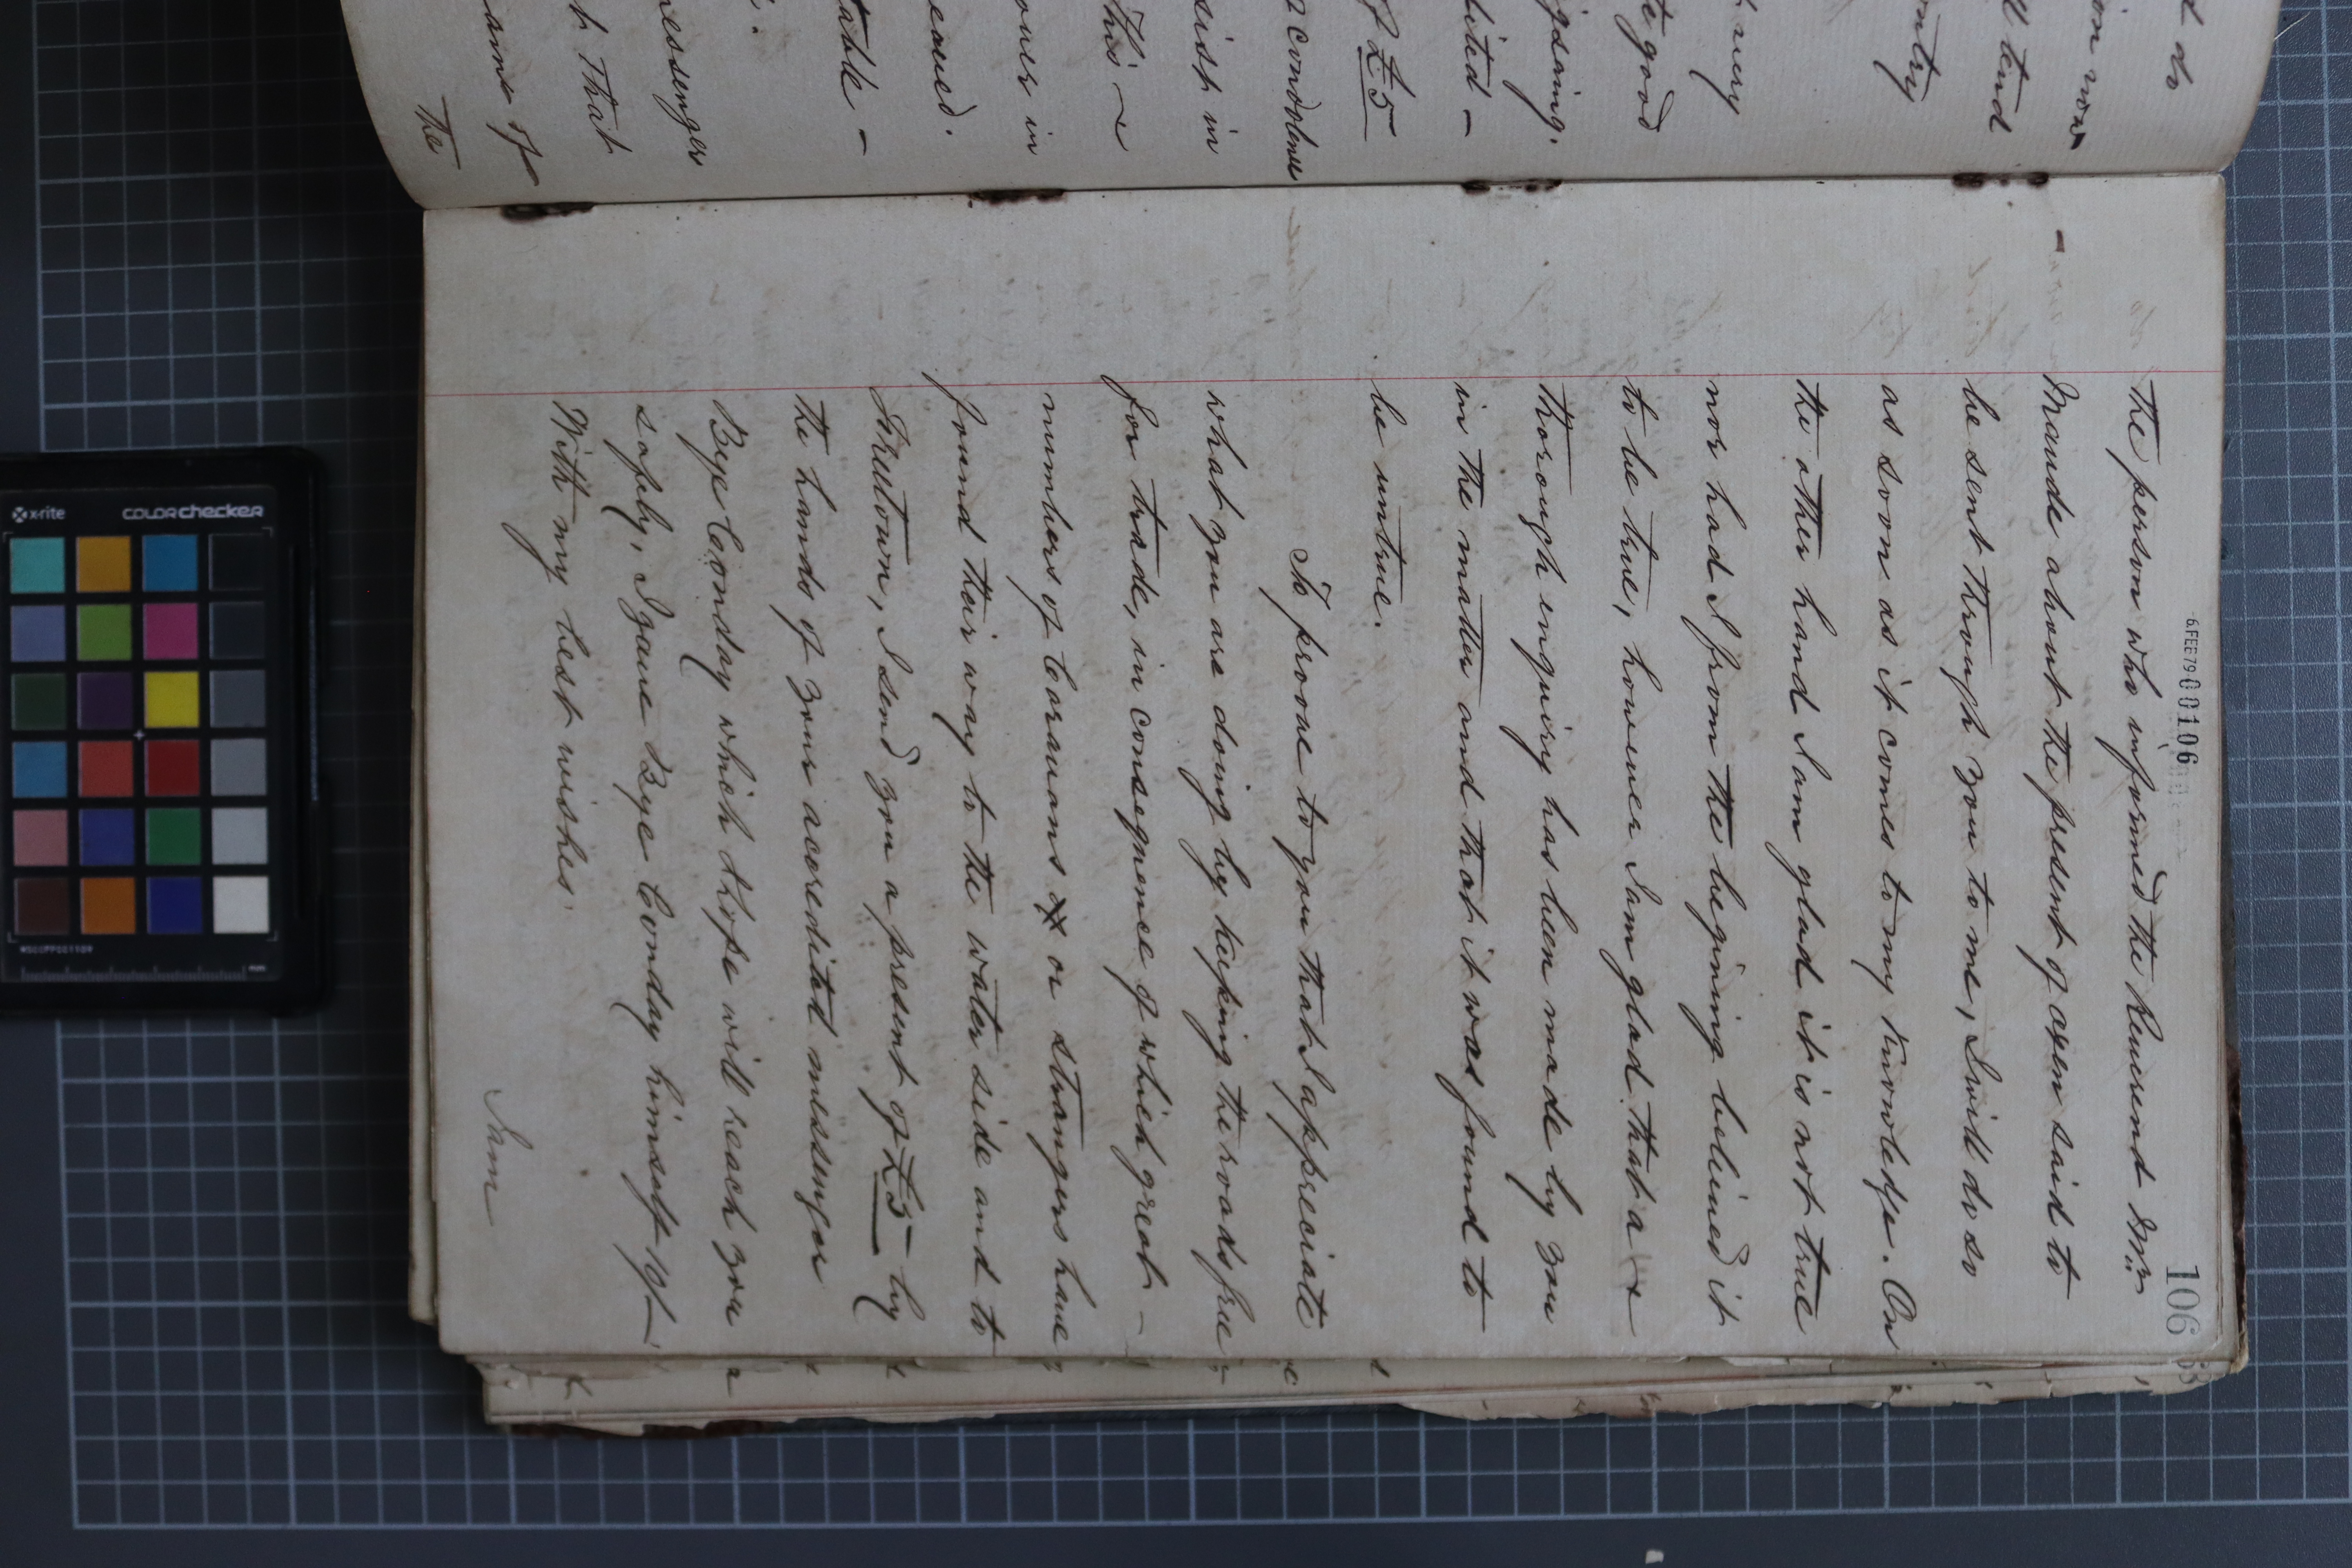 t do
ion now
ll tend
ntry
t very
te good
igsaing.
bited -
f £5
condolence
sist in
This ~
ours in
eaued.
table -
nessenger
h That
arms of
The
6.FEB79-00106
106
The person who informed the Reverend Mr
Maude about the present of oxen said to
be sent through you to me, I will do so
as soon as it comes to my knowledge. On
the other hand I am glad it is not true
nor had I from the begining believed it
to be true, however I am glad that a
thorough inquiry has been made by you
in the matter and that it was found to
be untrue.
To prove to you that I appreciate
what you are doing by keeping the roads free
for trade, in consequence of which great -
numbers of Caravans or strangers have
found their way to the water side and to
Freetown, I send you a present of £5 by
the hands of your accredited messenger
Beye Conday which I hope will reach you
safely, I gave Beye Conday himself 10/-
With my best wishes.
I am
x-rite
colorchecker
MSCCPPCC1109
mm